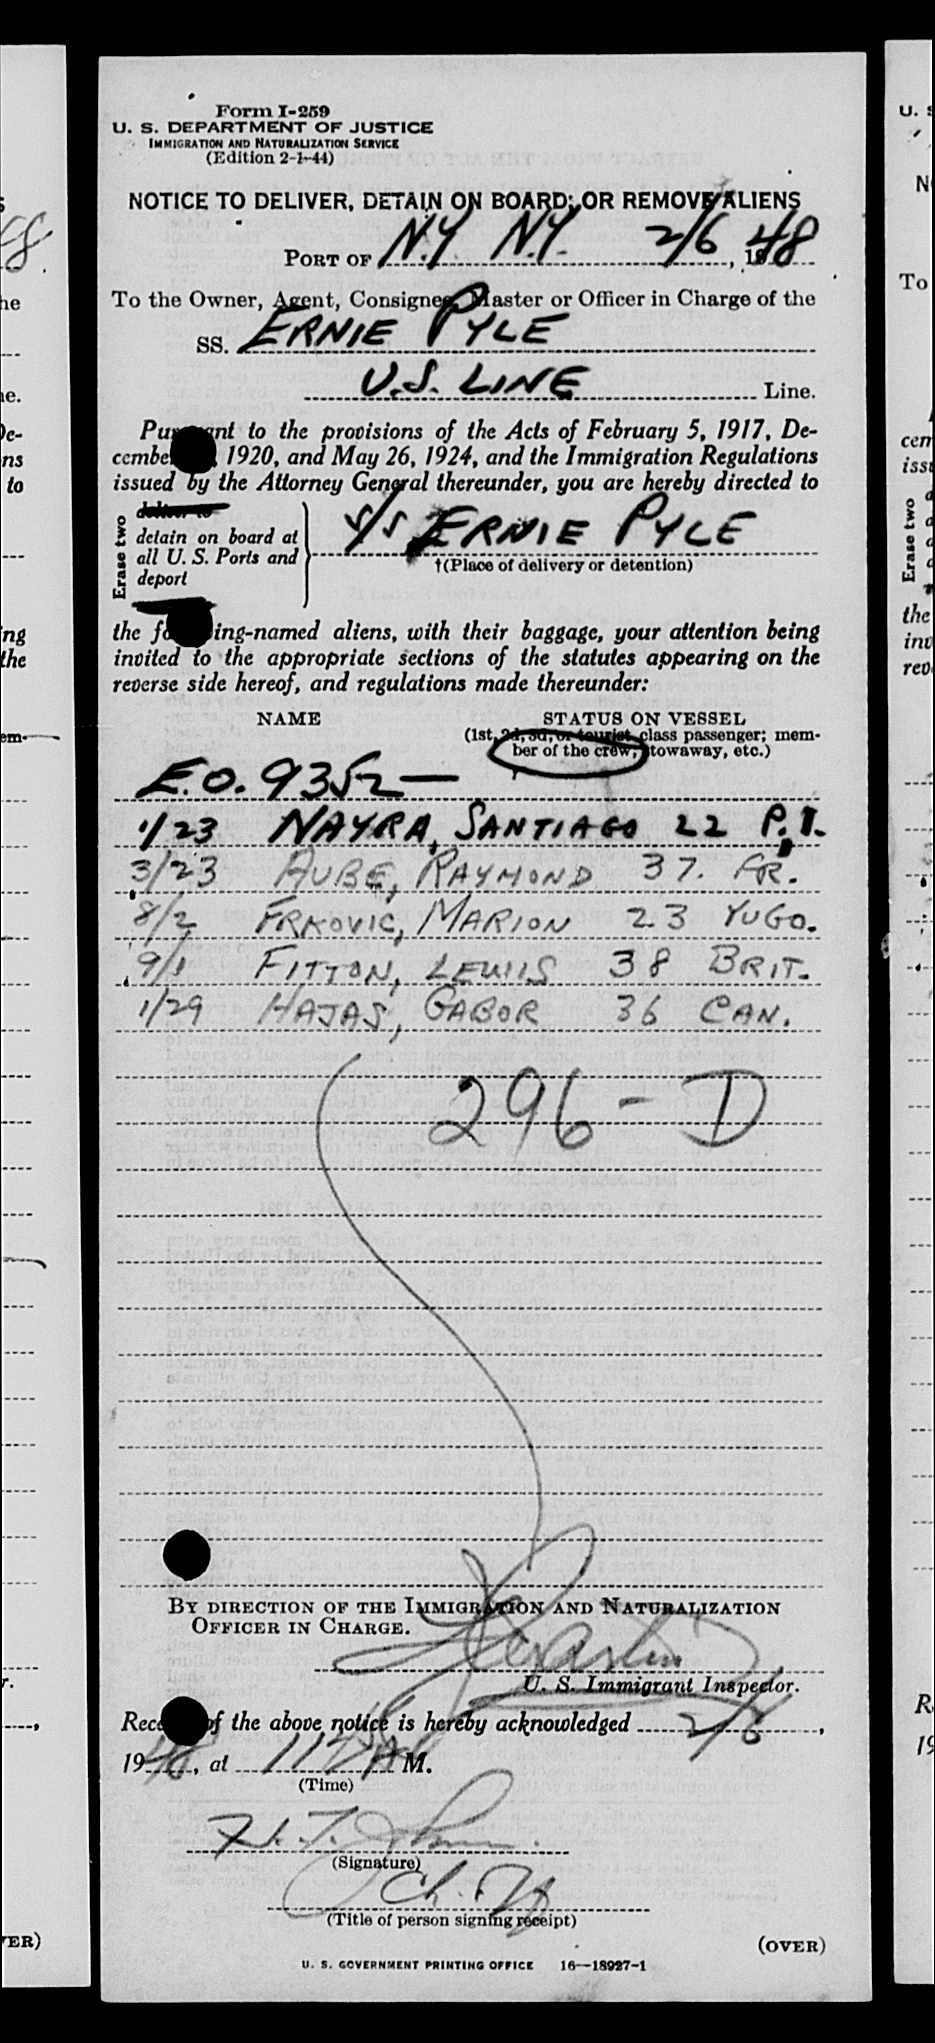 Form I-259
U. S. DEPARTMENT OF JUSTICE
IMMIGRATION AND NATURALIZATION SERVICE
(Edition 2-1-44)
NOTICE TO DELIVER, DETAIN ON BOARD, OR REMOVE ALIENS
PORT OF N.Y. N.Y. 2/6, 1948
To the Owner, Agent, Consignee, Master or Officer in Charge of the
SS. ERNIE PYLE
U.S. LINE Line.
Pursuant to the provisions of the Acts of February 5, 1917, De-
cember, 1920, and May 26, 1924, and the Immigration Regulations
issued by the Attorney General thereunder, you are hereby directed to
Erase two
deliver to
detain on board at
all U. S. Ports and
deport
S/S ERNIE PYLE
†(Place of delivery or detention)
the following-named aliens, with their baggage, your attention being
invited to the appropriate sections of the statutes appearing on the
reverse side hereof, and regulations made thereunder:
NAME STATUS ON VESSEL
(1st, 2d, 3d, or tourist class passenger; mem-
ber of the crew, stowaway, etc.)
E.O. 9352 —
1/23 NAYRA, SANTIAGO 22 P.I.
3/23 AUBE, RAYMOND 37. FR.
8/2 FRKOVIC, MARION 23 YUGO.
9/1 FITTON, LEWIS 38 BRIT.
1/29 HAJAS, GABOR 36 CAN.
296 - D
BY DIRECTION OF THE IMMIGRATION AND NATURALIZATION
OFFICER IN CHARGE.
U. S. Immigrant Inspector.
Receipt of the above notice is hereby acknowledged 2/6,
1948, at A M.
(Time)
H. T.
(Signature)
Ch.
(Title of person signing receipt)
(OVER)
U. S. GOVERNMENT PRINTING OFFICE 16—18927-1